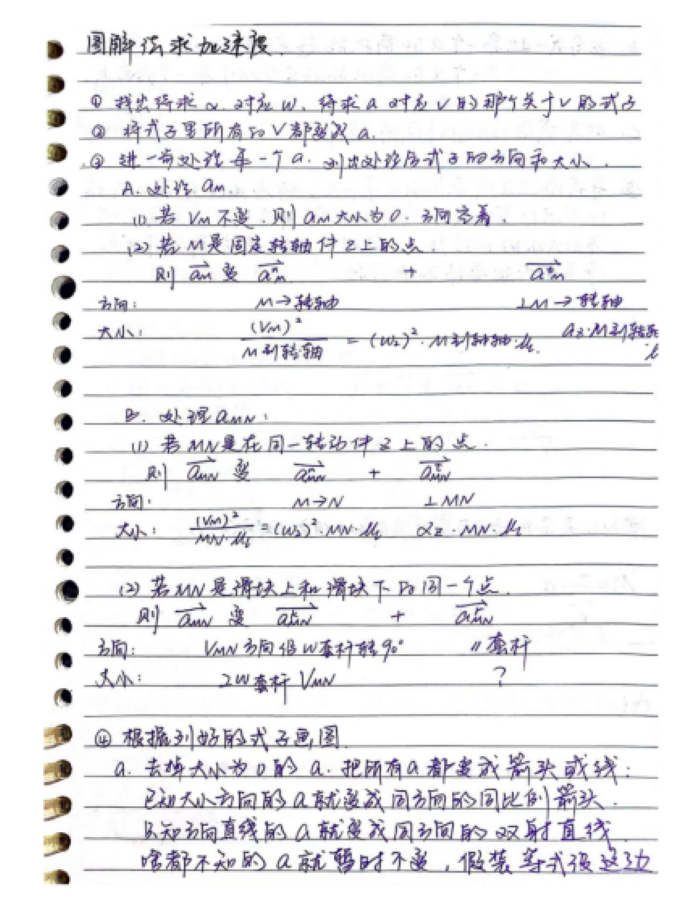 图解法求加速度.
① 找出待求α对应w,待求a对应v的那个关于v的式子
② 将式子里所有的V都变成a.
③ 进一步处理每一个a.列出处理后式子的方向和大小.
A. 处理 aM.
(1) 若 VM不变.则aM大小为0.方向空着.
(2) 若M是固定转轴件z上的点.
则 aM 变 aⁿM + aᵗM
方向: M→转轴 ⊥M→转轴
大小: (VM)² / M到转轴 = (wz)²·M到转轴·μl. αz·M到转轴 μl
B. 处理aMN:
(1) 若MN是在同一转动件z上的点.
则 aMN 变 aⁿMN + aᵗMN
方向: M→N ⊥MN
大小: (VMN)² / MN·μl = (wz)²·MN·μl αz·MN·μl
(2) 若MN是滑块上和滑块下的同一个点.
则 aMN 变 aᵏMN + aʳMN
方向: VMN方向沿w套杆转90° ∥套杆
大小: 2w套杆 VMN ?
④ 根据列好的式子画图.
a. 去掉大小为0的a.把所有a都变成箭头或线:
已知大小方向的a就变成同方向的同比例箭头.
只知方向直线的a就变成同方向的双射直线.
啥都不知的a就暂时不变,假装等式没这边